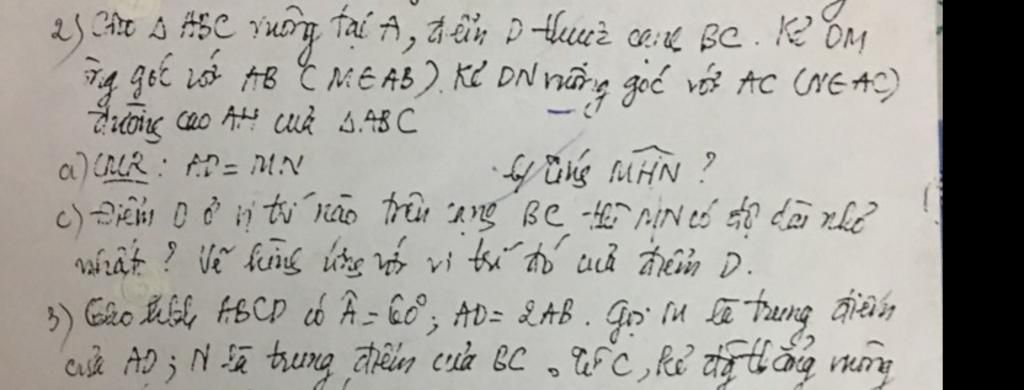 2) Cho Δ ABC vuông tại A, điểm D thuộc cạnh BC. Kẻ DM
góc với AB (M∈AB). Kẻ DN vuông góc với AC (N∈AC)
đường cao AH của Δ ABC
a) CMR: AD = MN b) Tính MHN̂ ?
c) Điểm D ở vị trí nào trên cạnh BC thì MN có độ dài nhỏ
nhất? Vẽ hình ứng với vị trí đó của điểm D.
3) Cho hbh ABCD có Â = 60°; AD = 2AB. Gọi M là trung điểm
của AD; N là trung điểm của BC. Từ C, kẻ đg thẳng vuông